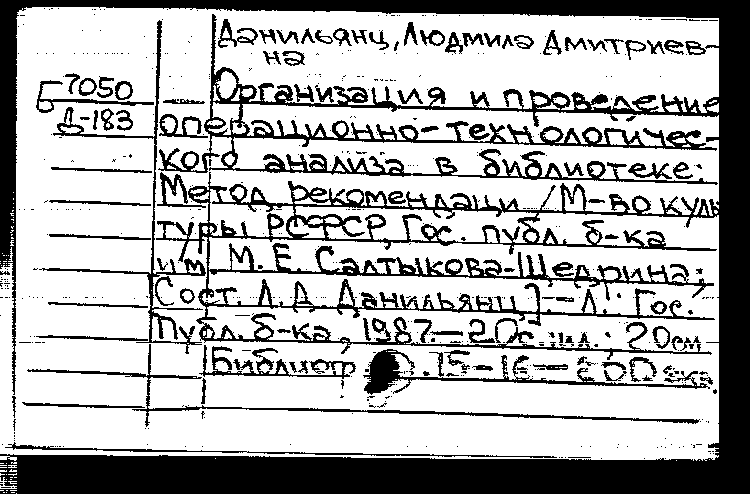 Данильянц, Людмила Дмитриев-
на
Б7050
Д-183
Организация и проведение
операционно-технологичес-
кого анализа в библиотеке:
Метод. рекомендаци / М-во куль
туры РСФСР, Гос. публ. б-ка
им. М. Е. Салтыкова-Щедрина;
[Сост. Л. Д. Данильянц]. – Л.: Гос.
Публ. б-ка, 1987. – 20с. : ил. ; 20см
Библиогр. 15-16 –